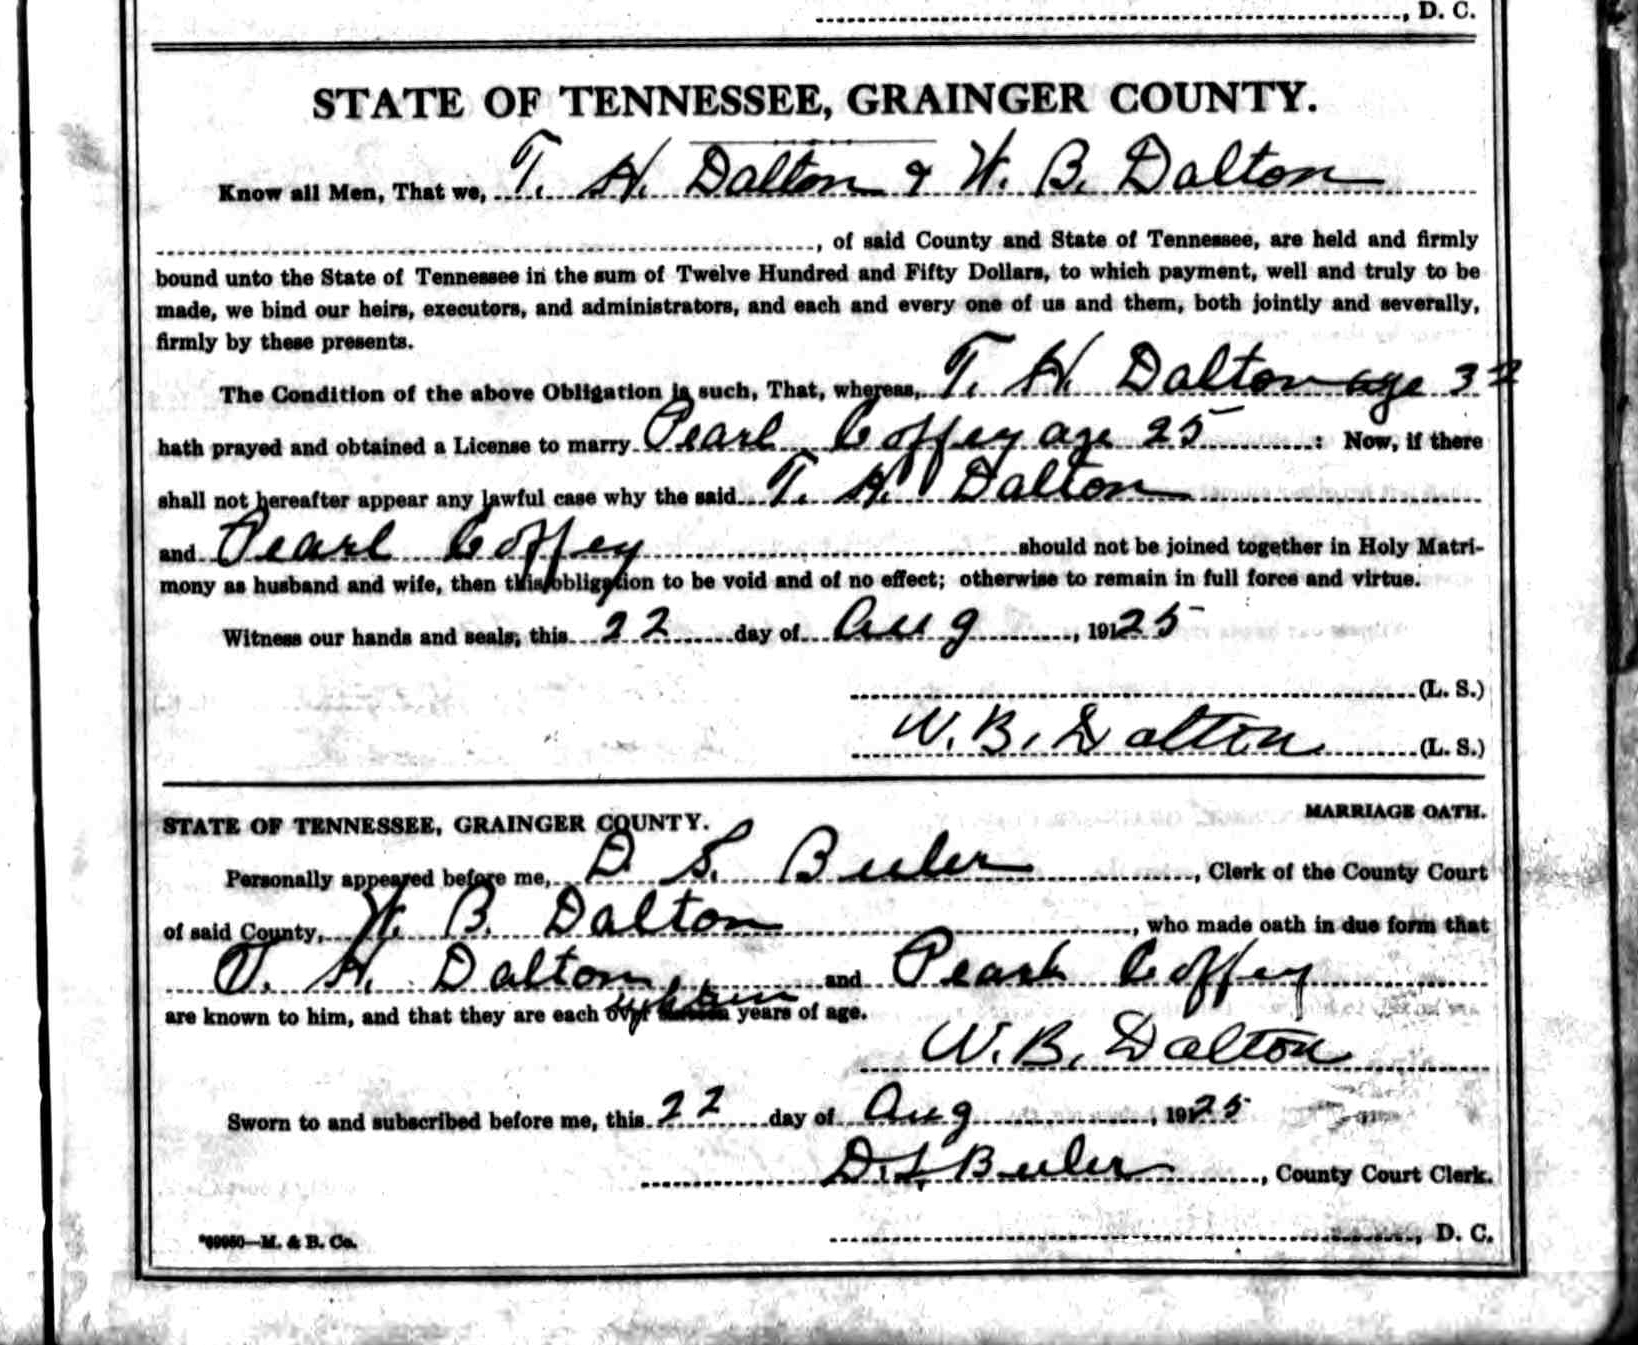 , D. C.
STATE OF TENNESSEE, GRAINGER COUNTY.
Know all Men, That we, T. H. Dalton & W. B. Dalton
, of said County and State of Tennessee, are held and firmly
bound unto the State of Tennessee in the sum of Twelve Hundred and Fifty Dollars, to which payment, well and truly to be
made, we bind our heirs, executors, and administrators, and each and every one of us and them, both jointly and severally,
firmly by these presents.
The Condition of the above Obligation is such, That, whereas, T. H. Dalton age 32
hath prayed and obtained a License to marry Pearl Coffey age 25 : Now, if there
shall not hereafter appear any lawful case why the said T. H. Dalton
and Pearl Coffey should not be joined together in Holy Matri-
mony as husband and wife, then this obligation to be void and of no effect; otherwise to remain in full force and virtue.
Witness our hands and seals, this 22 day of Aug , 1925
(L. S.)
W. B. Dalton (L. S.)
MARRIAGE OATH.
STATE OF TENNESSEE, GRAINGER COUNTY.
Personally appeared before me, D. S. Beeler , Clerk of the County Court
of said County, W. B. Dalton , who made oath in due form that
T. H. Dalton and Pearl Coffey
are known to him, and that they are each over eighteen years of age.
W. B. Dalton
Sworn to and subscribed before me, this 22 day of Aug , 1925
D. S. Beeler , County Court Clerk.
*99960—M. & B. Co.
, D. C.